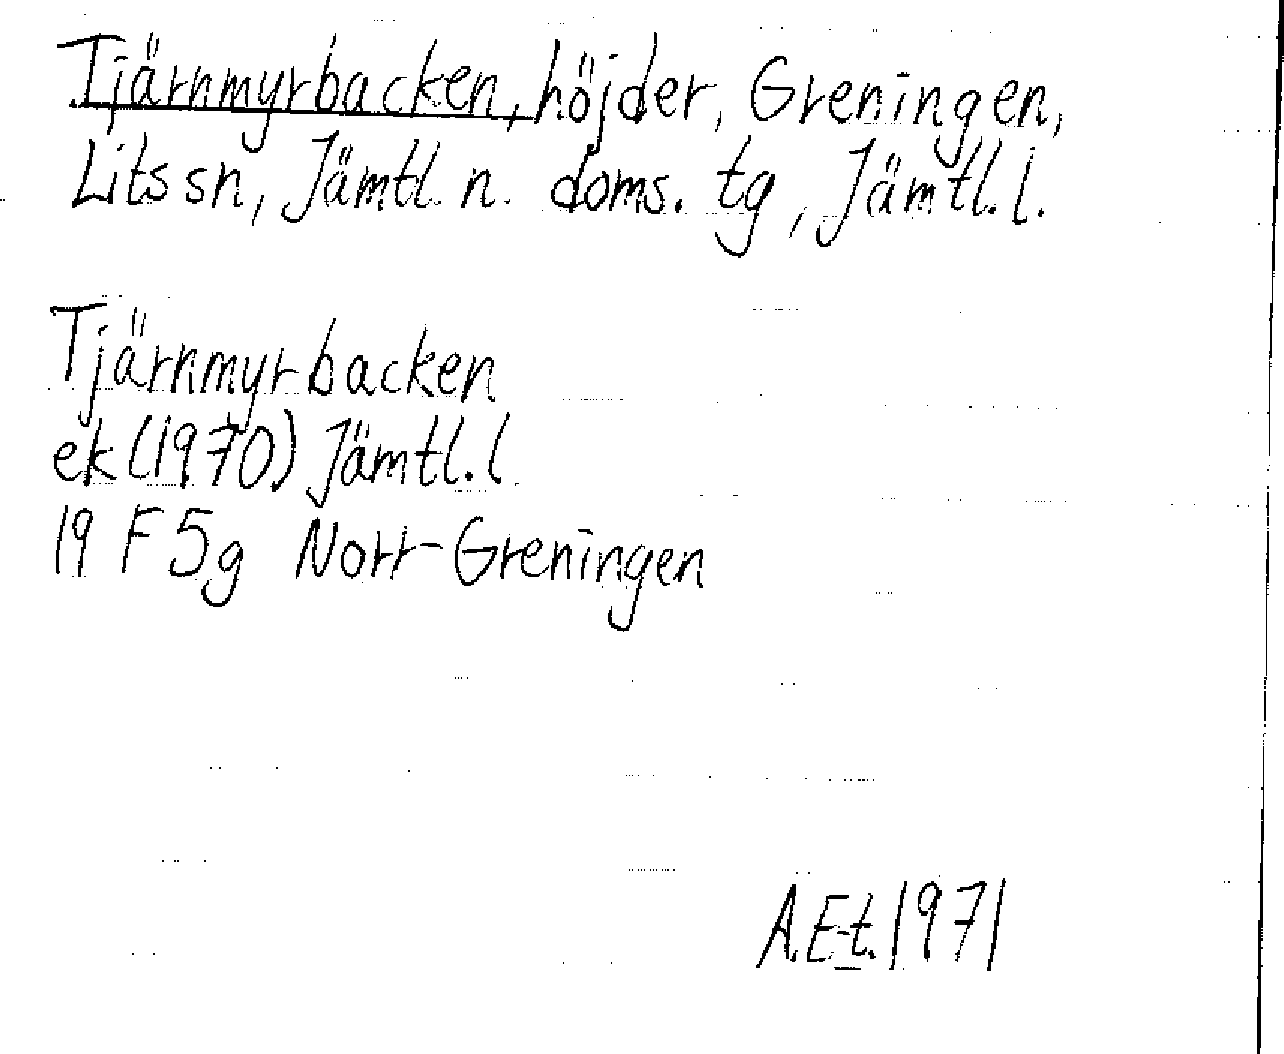 Tjärnmyrbacken, höjder, Greningen,
Lits sn, Jämtl. n. doms. tg, Jämtl. l.
Tjärnmyrbacken
ek (1970) Jämtl. l
19 F 5g Norr-Greningen
A.E-t. 1971